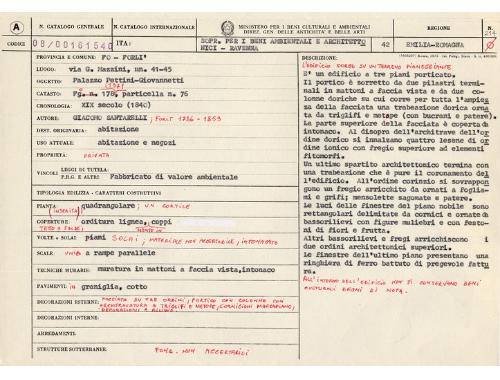 A
N. CATALOGO GENERALE
N. CATALOGO INTERNAZIONALE
MINISTERO PER I BENI CULTURALI E AMBIENTALI
DIREZ. GEN. DELLE ANTICHITÀ E BELLE ARTI
REGIONE
N.
CODICI
08/00161540
ITA:
SOPR. PER I BENI AMBIENTALI E ARCHITETTO
NICI - RAVENNA
42
EMILIA-ROMAGNA
PROVINCIA E COMUNE: FO - FORLI'
LUOGO: via G. Mazzini, nn. 41-45
OGGETTO: Palazzo Pettini-Giovannetti
CATASTO: Fg. n. 178, particella n. 76
CRONOLOGIA: XIX secolo (1840)
AUTORE: GIACOMO SANTARELLI, FORLI' 1786 - 1859
DEST. ORIGINARIA: abitazione
USO ATTUALE: abitazione e negozi
PROPRIETÀ: PRIVATA
VINCOLI
LEGGI DI TUTELA:
P.R.G. E ALTRI: Fabbricato di valore ambientale
TIPOLOGIA EDILIZIA - CARATTERI COSTRUTTIVI
PIANTA: quadrangolare; UN CORTILE
COPERTURE: orditura lignea, coppi
VOLTE o SOLAI: piani SOLAI; MATERIALE NON
SCALE: a rampe parallele
TECNICHE MURARIE: muratura in mattoni a faccia vista, intonaco
PAVIMENTI: IN graniglia, cotto
DECORAZIONI ESTERNE: FACCIATA SU TRE ORDINI; PORTICO CON COLONNE CON
DECORAZIONI INTERNE:
ARREDAMENTI:
STRUTTURE SOTTERRANEE: FOND. NON
DESCRIZIONE:
L'EDIFICIO SORGE SU UN TERRENO PIANEGGIANTE
E' un edificio a tre piani porticato.
Il portico è sorretto da due pilastri termi-
nali in mattoni a faccia vista e da due co-
lonne doriche su cui corre per tutta l'ampiez
za della facciata una trabeazione dorica orna
ta da triglifi e metope (con bucrani e patere).
La parte superiore della facciata è coperta da
intonaco. Al disopra dell'architrave dell'or
dine dorico si innalzano quattro lesene di or
dine ionico con fregio superiore ad elementi
fitomorfi.
Un ultimo spartito architettonico termina con
una trabeazione che è pure il coronamento del
l'edificio. All'ordine corinzio si sovrappon
gono un fregio arricchito da ornati a foglia-
mi e grifi; mensolette sagomate e patere.
Le luci delle finestre del piano nobile sono
rettangolari delimitate da cornici e ornate da
bassorilievi con figure muliebri e con festo-
ni di fiori e frutta.
Altri bassorilievi e fregi arricchiscono i
due ordini architettonici superiori.
Le finestre dell'ultimo piano presentano una
ringhiera di ferro battuto di pregevole fattu
ra.
ALL'INTERNO DELL'EDIFICIO NON SI CONSERVANO BENI
CULTURALI DEGNI DI NOTA.